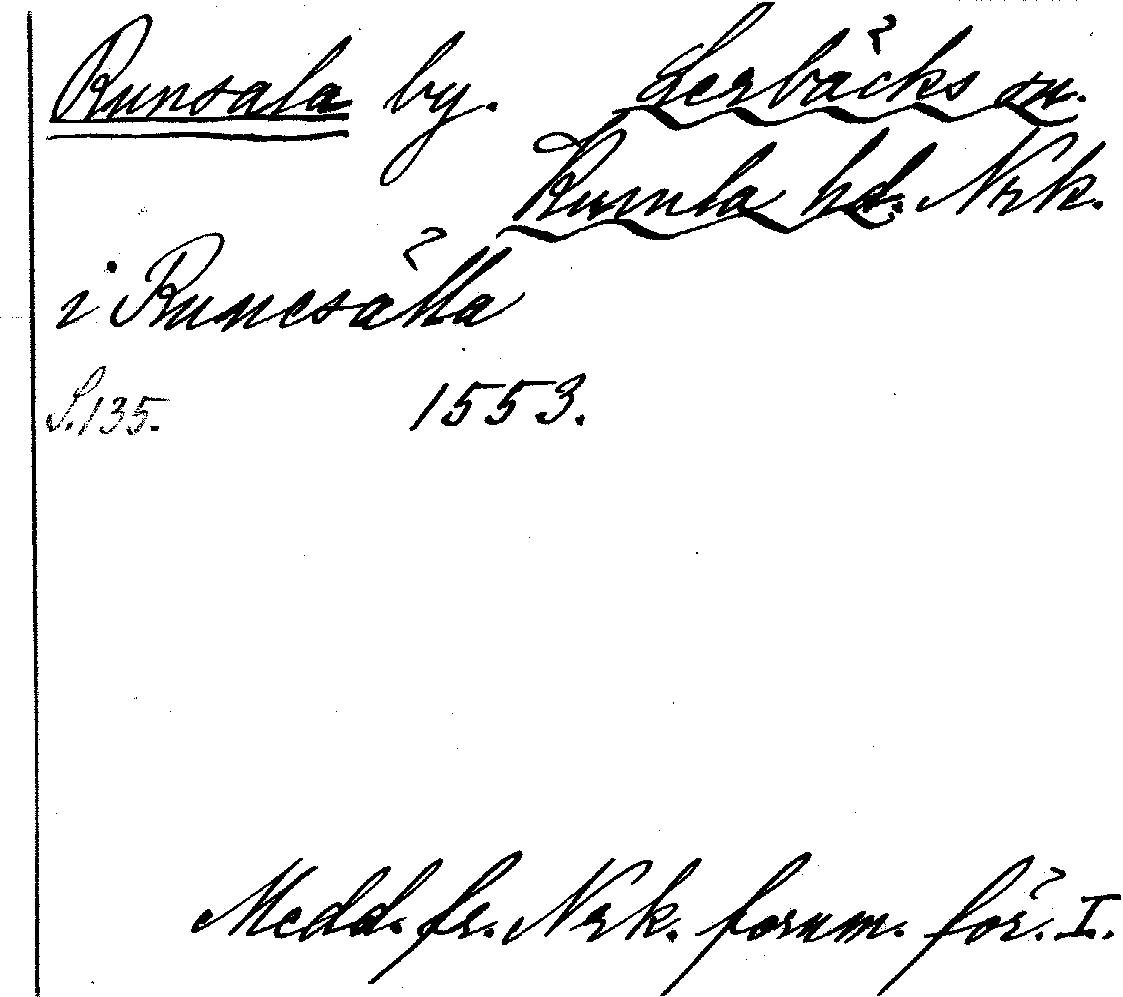 Runsala by. Lerbäcks sn.
Kumla hd. Nrk.
i Runesätla
S. 135. 1553.
Medd. fr. Nrk. fornm. för. I.